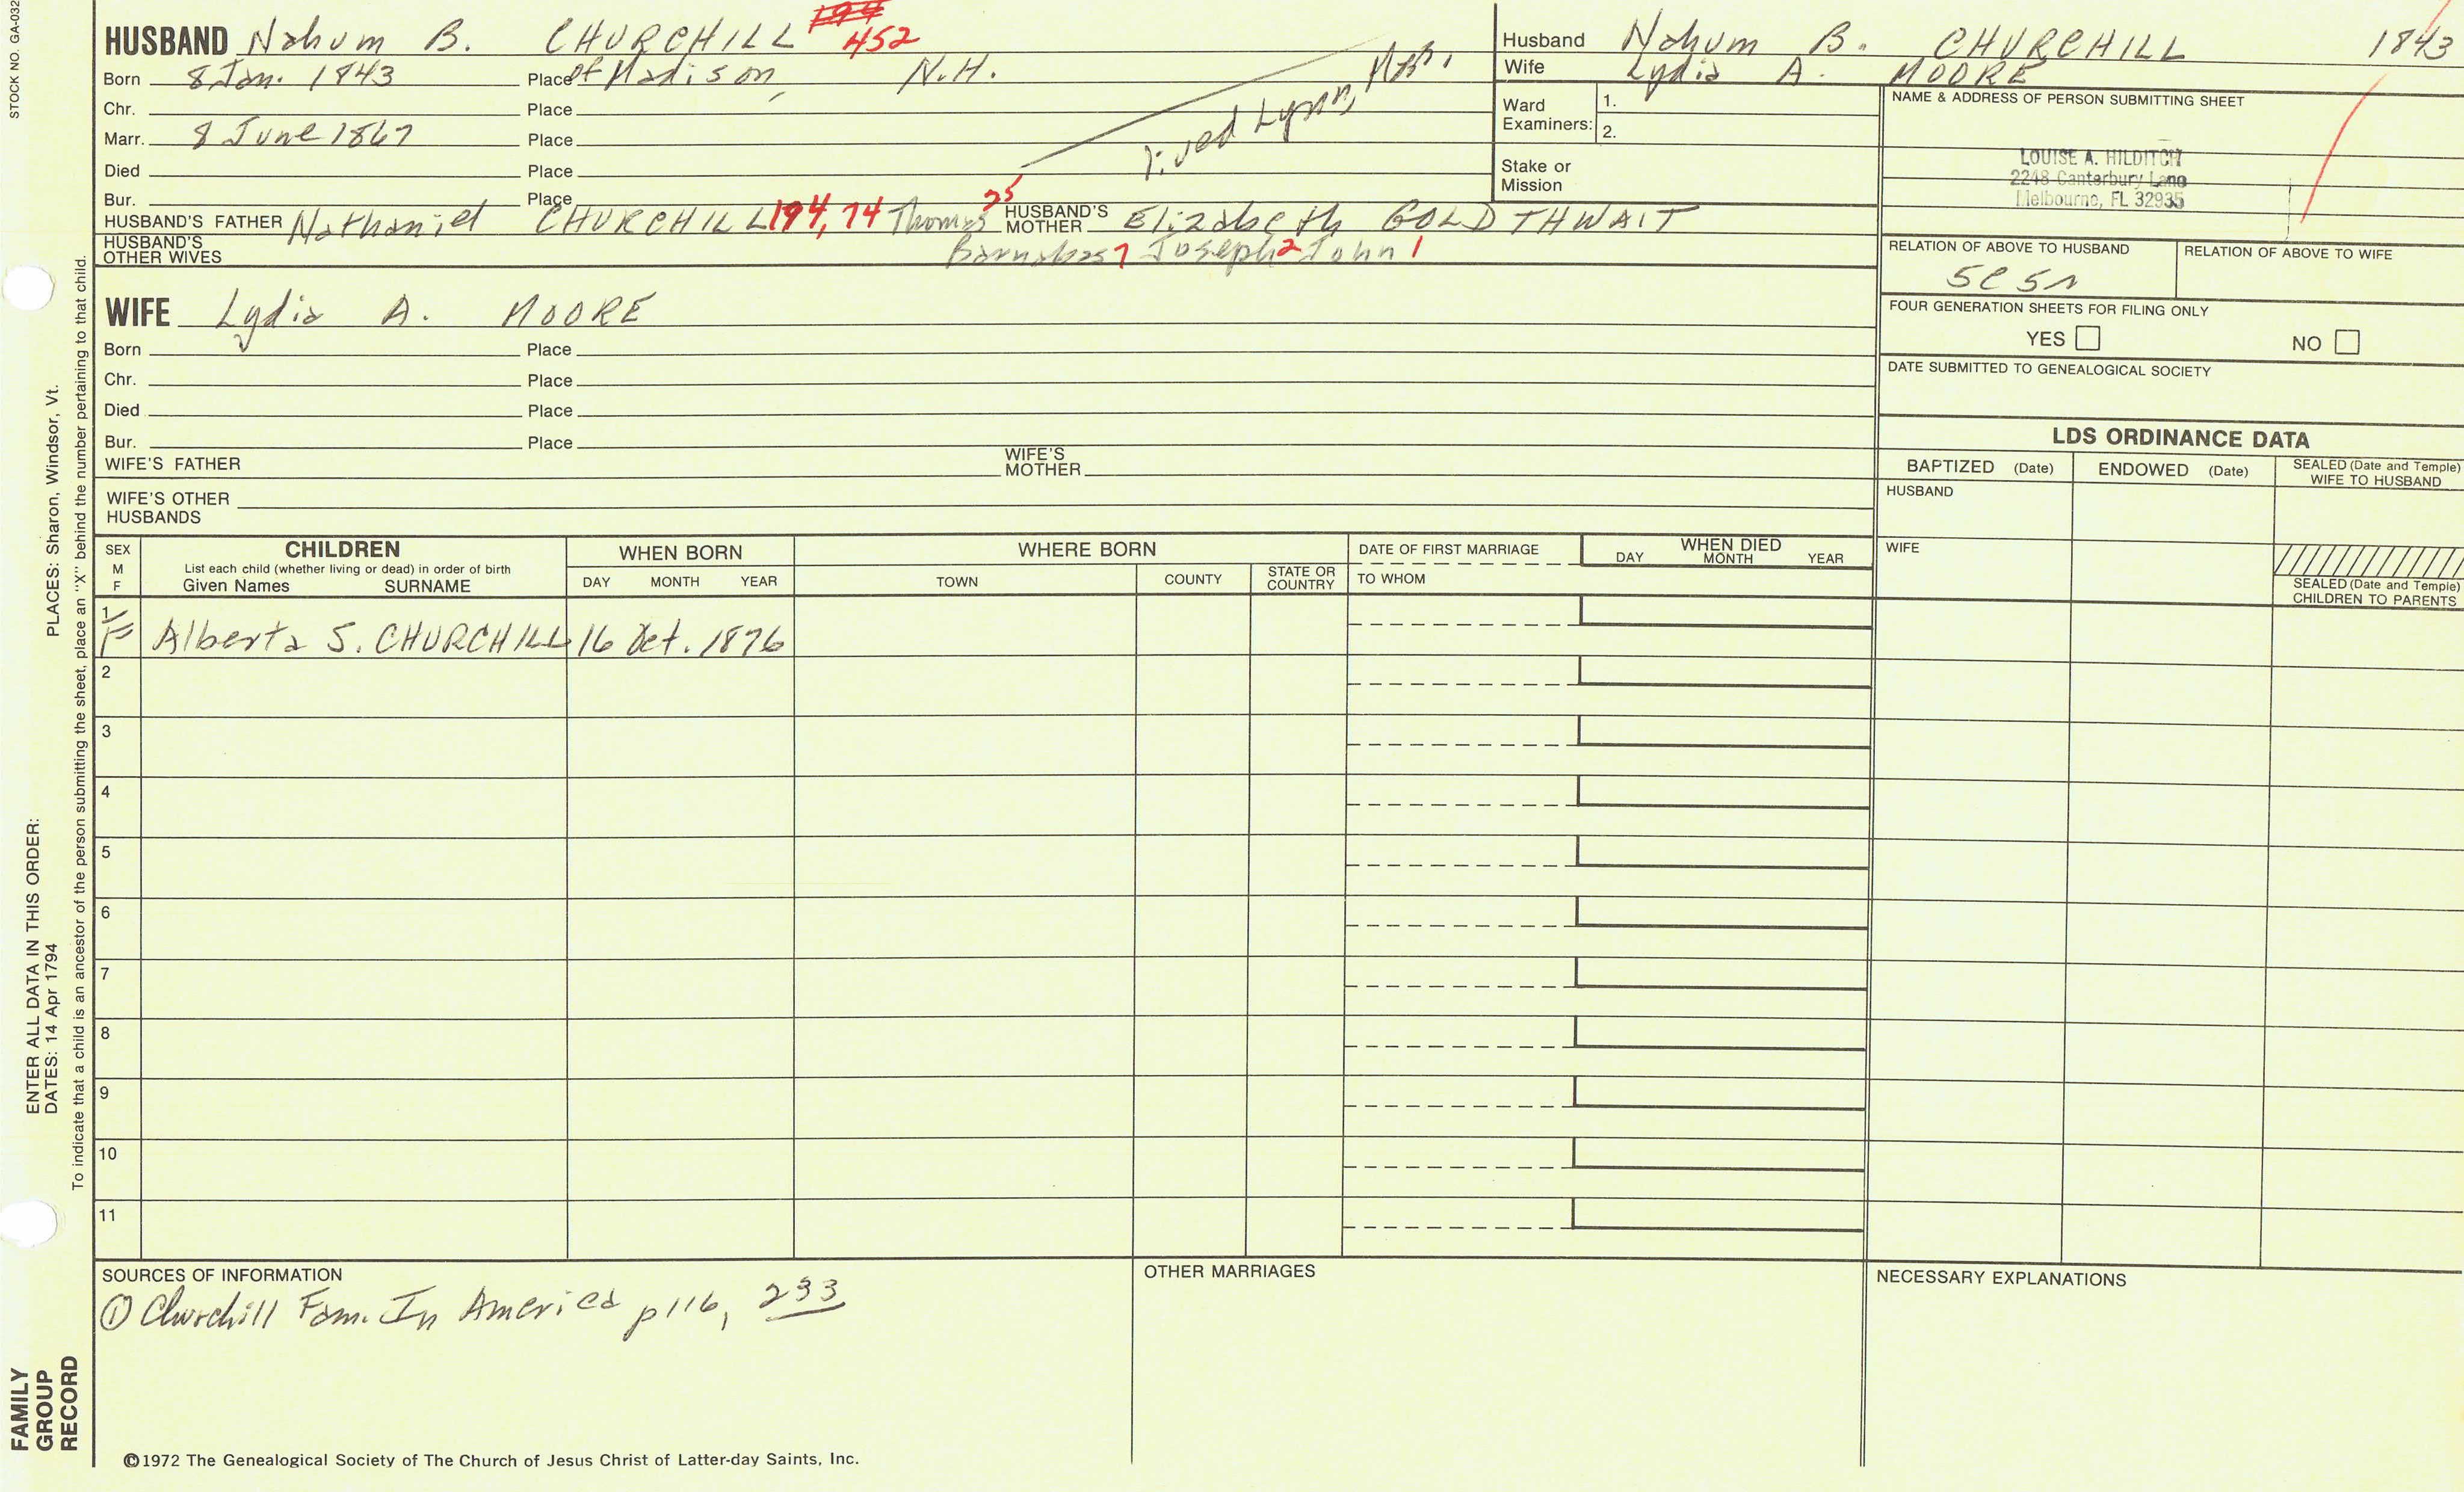 STOCK NO. GA-032
HUSBAND Nahum B. CHURCHILL 194 452
Born 8 Jan. 1843 Place of Madison, N.H.
Chr. Place
Marr. 8 June 1867 Place
Died Place
Bur. Place
lived Lynn,
HUSBAND'S FATHER Nathaniel CHURCHILL 194, 74 Thomas 25 HUSBAND'S MOTHER Elizabeth GOLDTHWAIT
HUSBAND'S OTHER WIVES Barnabas 7 Joseph 2 John 1
WIFE Lydia A. MOORE
Born Place
Chr. Place
Died Place
Bur. Place
WIFE'S FATHER WIFE'S MOTHER
WIFE'S OTHER HUSBANDS
Husband Nahum B. CHURCHILL 1843
Wife Lydia A. MOORE
Ward Examiners: 1.
2.
Stake or Mission
NAME & ADDRESS OF PERSON SUBMITTING SHEET
LOUISE A. HILDITCH
2248 Canterbury Lane
Melbourne, FL 32935
RELATION OF ABOVE TO HUSBAND RELATION OF ABOVE TO WIFE
FOUR GENERATION SHEETS FOR FILING ONLY
YES NO
DATE SUBMITTED TO GENEALOGICAL SOCIETY
LDS ORDINANCE DATA
BAPTIZED (Date) ENDOWED (Date) SEALED (Date and Temple) WIFE TO HUSBAND
HUSBAND
WIFE
SEALED (Date and Temple) CHILDREN TO PARENTS
SEX M F
CHILDREN
List each child (whether living or dead) in order of birth
Given Names SURNAME
WHEN BORN
DAY MONTH YEAR
WHERE BORN
TOWN COUNTY STATE OR COUNTRY
DATE OF FIRST MARRIAGE
TO WHOM
WHEN DIED
DAY MONTH YEAR
1 F Alberta S. CHURCHILL 16 Oct. 1876
2
3
4
5
6
7
8
9
10
11
SOURCES OF INFORMATION
① Churchill Fam. In America p 116, 233
OTHER MARRIAGES
NECESSARY EXPLANATIONS
©1972 The Genealogical Society of The Church of Jesus Christ of Latter-day Saints, Inc.
FAMILY GROUP RECORD
ENTER ALL DATA IN THIS ORDER:
DATES: 14 Apr 1794 PLACES: Sharon, Windsor, Vt.
To indicate that a child is an ancestor of the person submitting the sheet, place an "X" behind the number pertaining to that child.